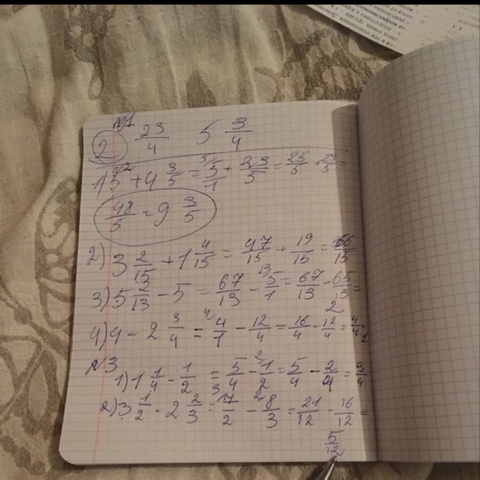 №1
2) 23/4 5 3/4
№2
1) 5 + 4 3/5 = 5/1 + 23/5 = 25/5 + 23/5 =
48/5 = 9 3/5
2) 3 2/15 + 1 4/15 = 47/15 + 19/15 = 66/15
3) 5 2/13 - 5 = 67/13 - 5/1 = 67/13 - 65/13 =
2
4) 4 - 2 3/4 = 4/1 - 12/4 = 16/4 - 12/4 = 4/4 = 1
№3
1) 1 1/4 - 1/2 = 5/4 - 1/2 = 5/4 - 2/4 = 3/4
2) 3 1/2 - 2 2/3 = 7/2 - 8/3 = 21/12 - 16/12 =
5/12